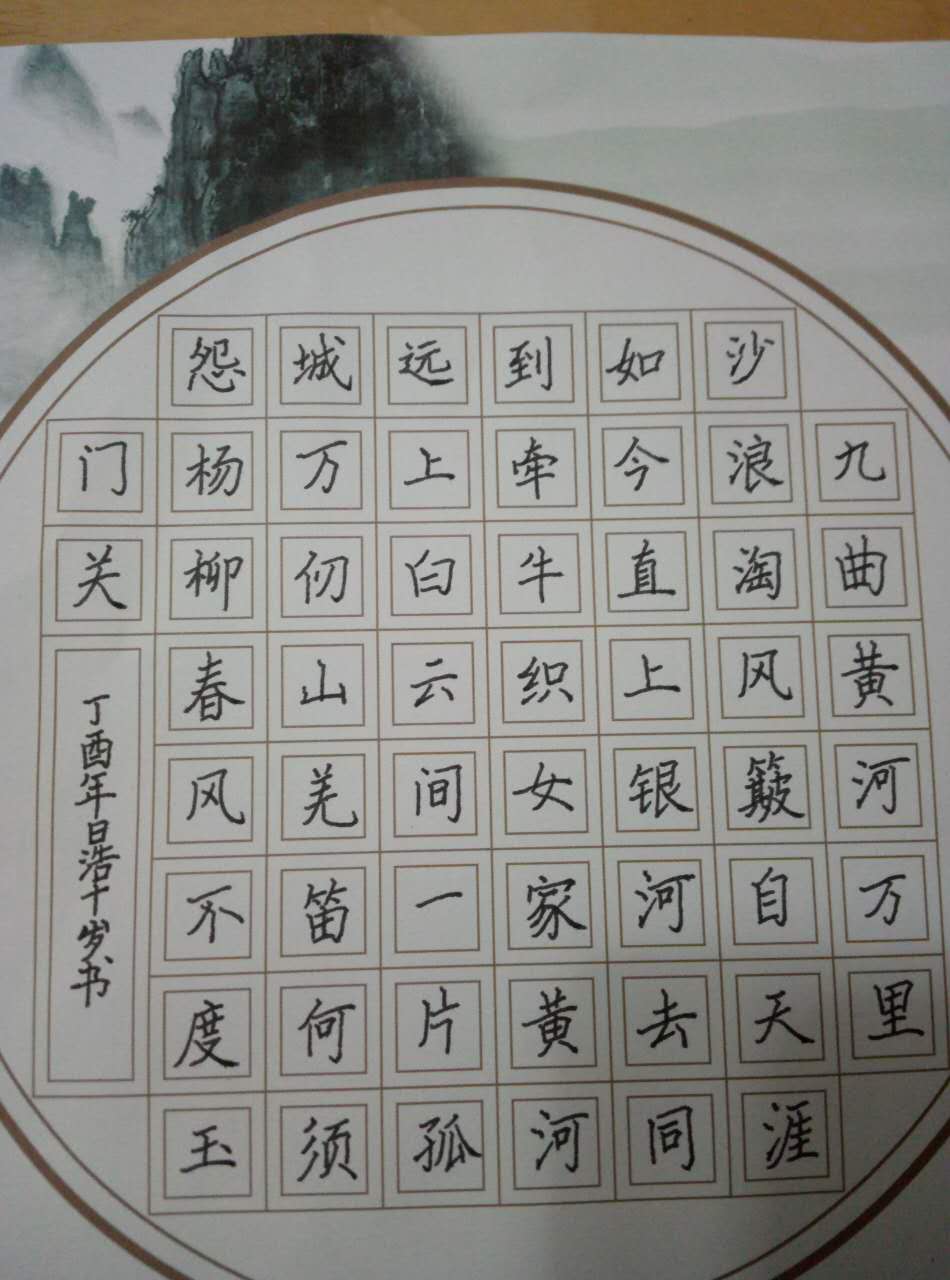 九曲黄河万里
沙浪淘风簸自天涯
如今直上银河去同
到牵牛织女家黄河
远上白云间一片孤
城万仞山羌笛何须
怨杨柳春风不度玉
门关
丁酉年日浩十岁书